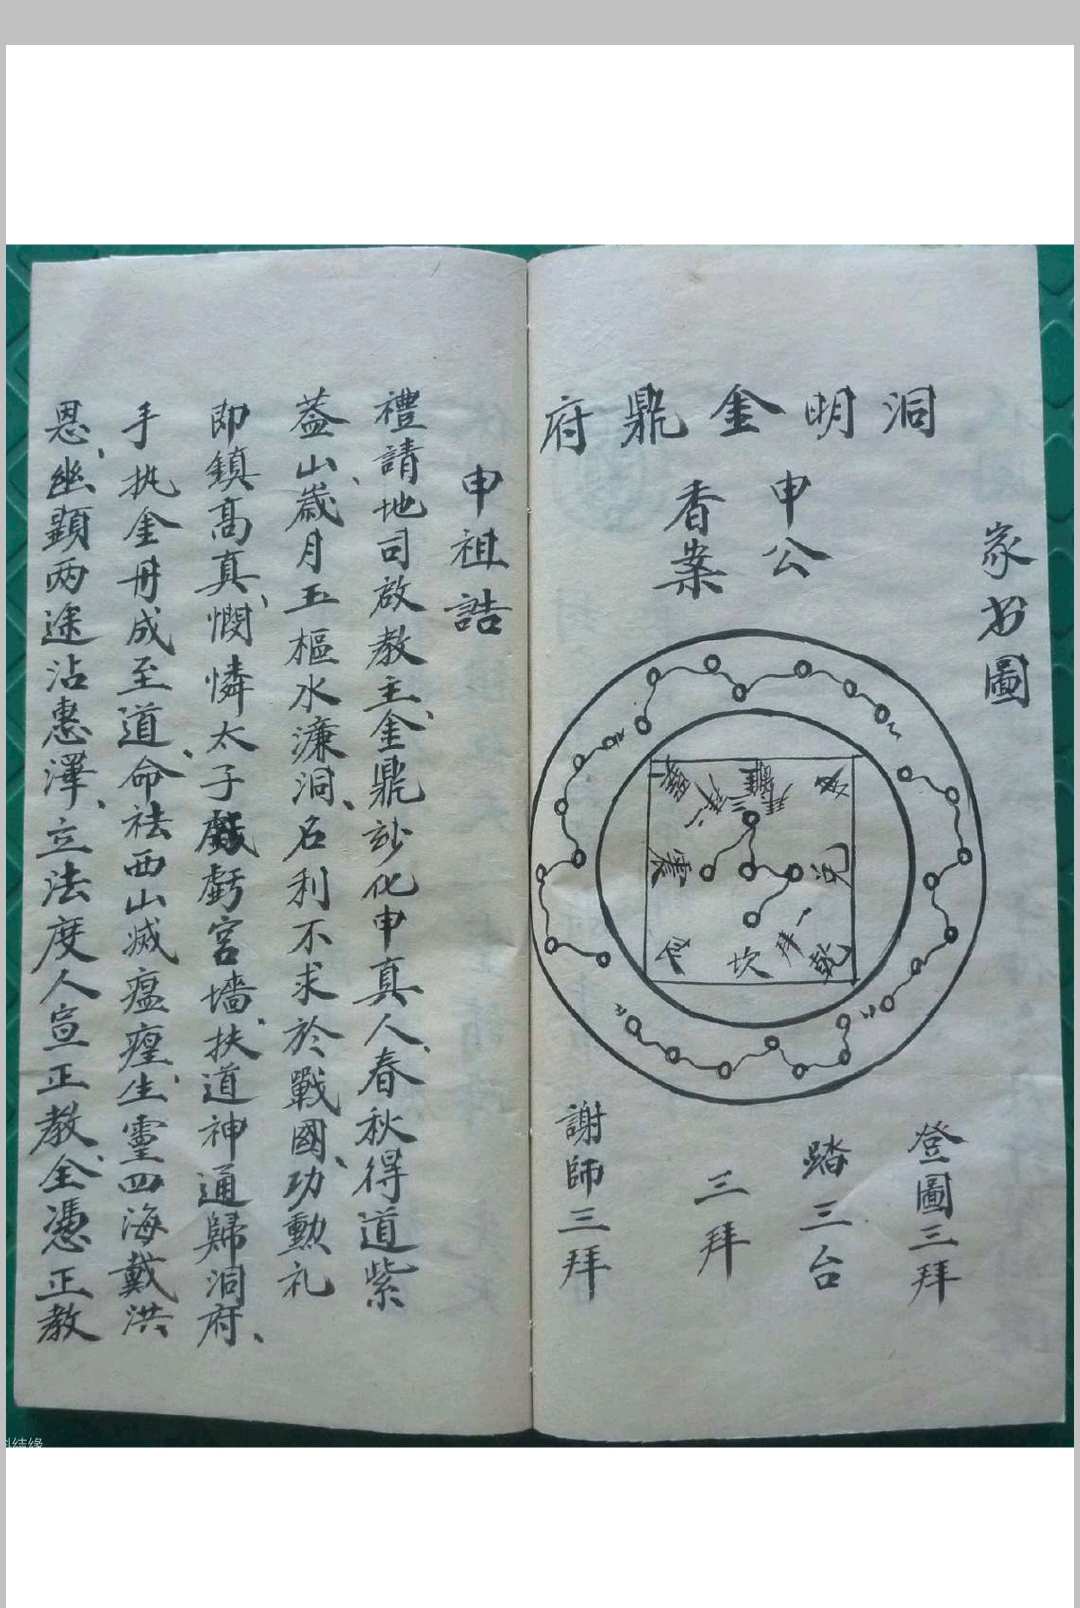 家书圖
洞明金鼎府
申公
香案
離
坤
兌
震
坎
乾
艮
一拜
登圖三拜
踏三台
三拜
謝師三拜
申祖誥
禮請地司啟教主、金鼎妙化申真人、春秋得道紫
蓋山、歲月玉樞水濂洞、名利不求於戰國、功勲礼
即鎮高真、憫憐太子戲虧宮墻、扶道神通歸洞府、
手执金冊成至道、命祛西山滅瘟瘟、生靈四海戴洪
恩、幽顕两途沾惠澤、立法度人宣正教、全憑正教
结缘